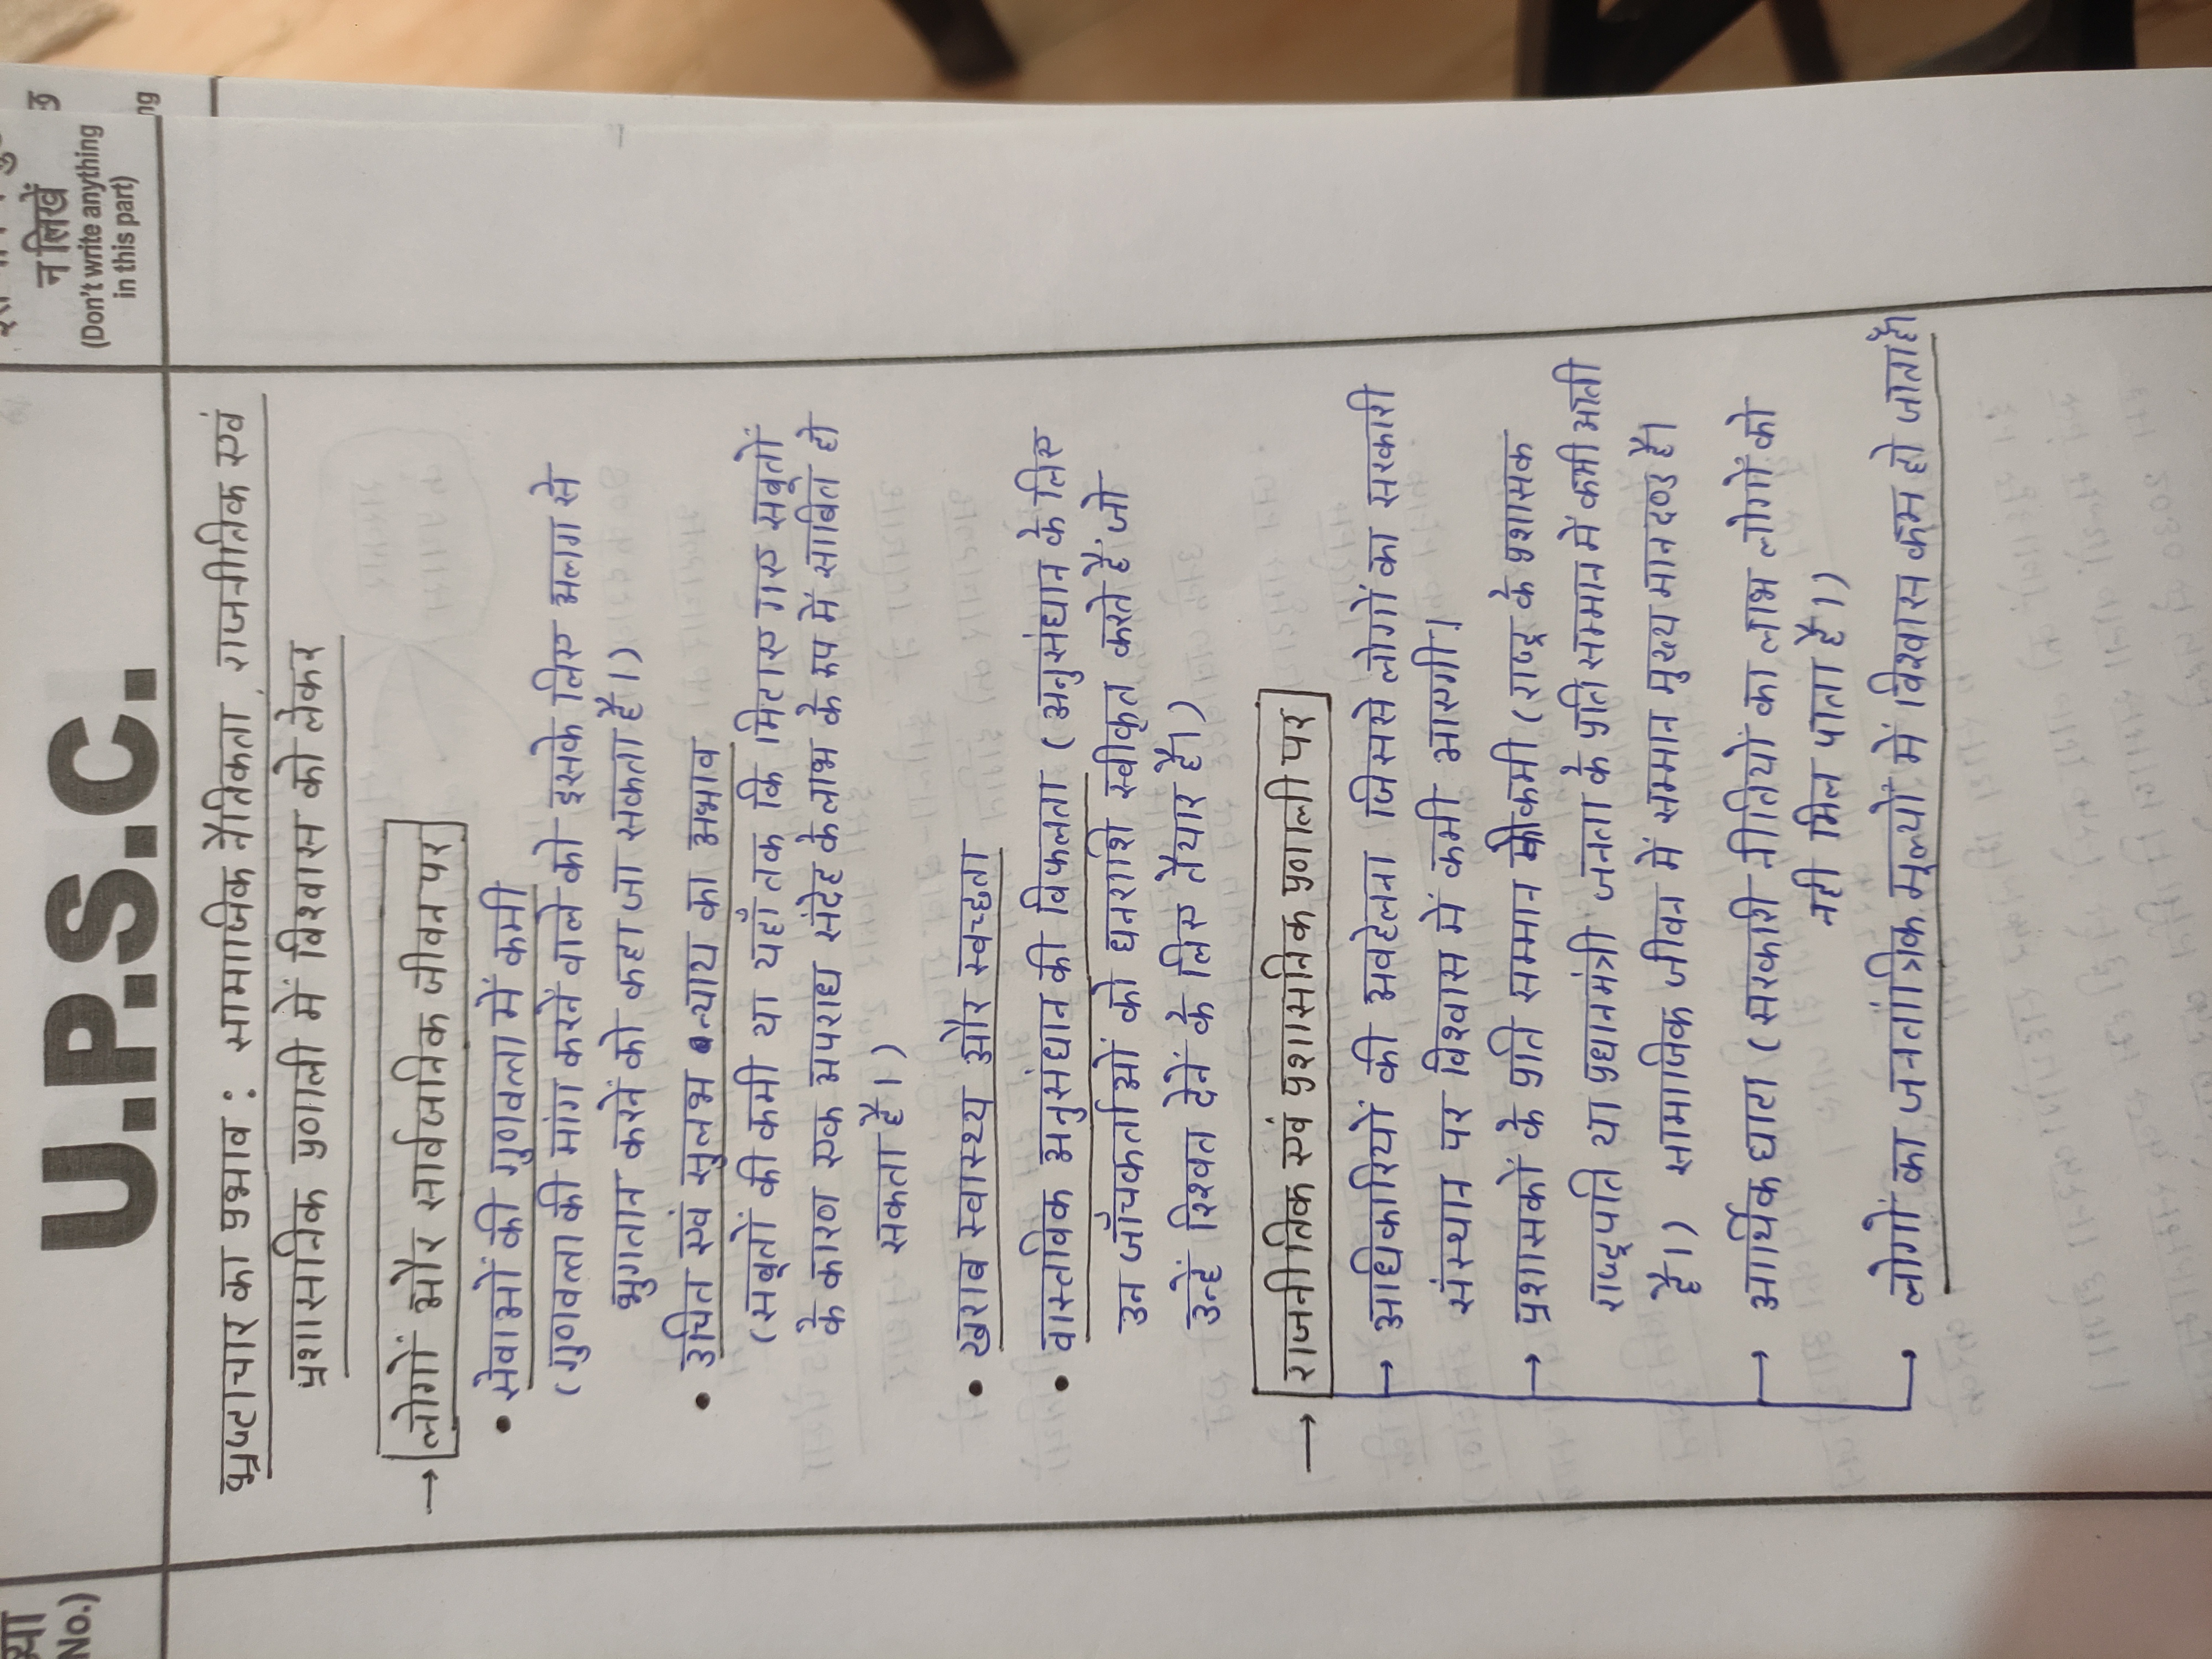 U.P.S.C.
न लिखें
(Don't write anything
in this part)
No.)
भ्रष्टाचार का प्रभाव : सामाजिक नैतिकता, राजनीतिक एवं
प्रशासनिक प्रणाली में विश्वास को लेकर
→ लोगों और सार्वजनिक जीवन पर
• सेवाओं की गुणवत्ता में कमी
(गुणवत्ता की मांग करने वाले को इसके लिए अलग से
भुगतान करने को कहा जा सकता है।)
• उचित एवं सुलभ न्याय का अभाव
(सबूतों की कमी या यहाँ तक कि मिटाए गए सबूतों
के कारण एक अपराध संदेह के लाभ के रूप में साबित हो
सकता है।)
• खराब स्वास्थ्य और स्वच्छता
• वास्तविक अनुसंधान की विफलता (अनुसंधान के लिए
उन जाँचकर्ताओं को धनराशि स्वीकृत करते हैं जो
उन्हें रिश्वत देनें के लिए तैयार हैं।)
→ राजनीतिक एवं प्रशासनिक प्रणाली पर
→ अधिकारियों की अवहेलना जिससे लोगों का सरकारी
संस्थान पर विश्वास में कमी आएगी।
→ प्रशासकों के प्रति सम्मान में कमी (राष्ट्र के प्रशासक
राष्ट्रपति या प्रधानमंत्री जनता के प्रति सम्मान में कमी आती
है।) सामाजिक जीवन में सम्मान मुख्य मानदण्ड है।
→ आर्थिक घाटा (सरकारी नीतियों का लाभ लोगों को
नही मिल पाता है।)
→ लोगों का जनतांत्रिक मूल्यों में विश्वास कम हो जाता है।